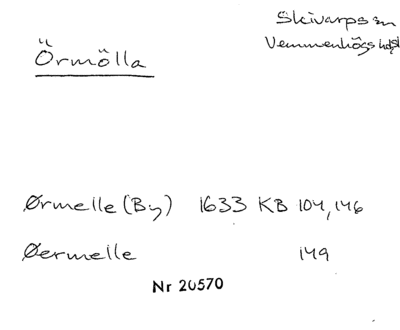 Skivarps sn
Vemmenhögs hd
Örmölla
Ørmelle (By) 1633 KB 104, 146
Øermelle 149
Nr 20570